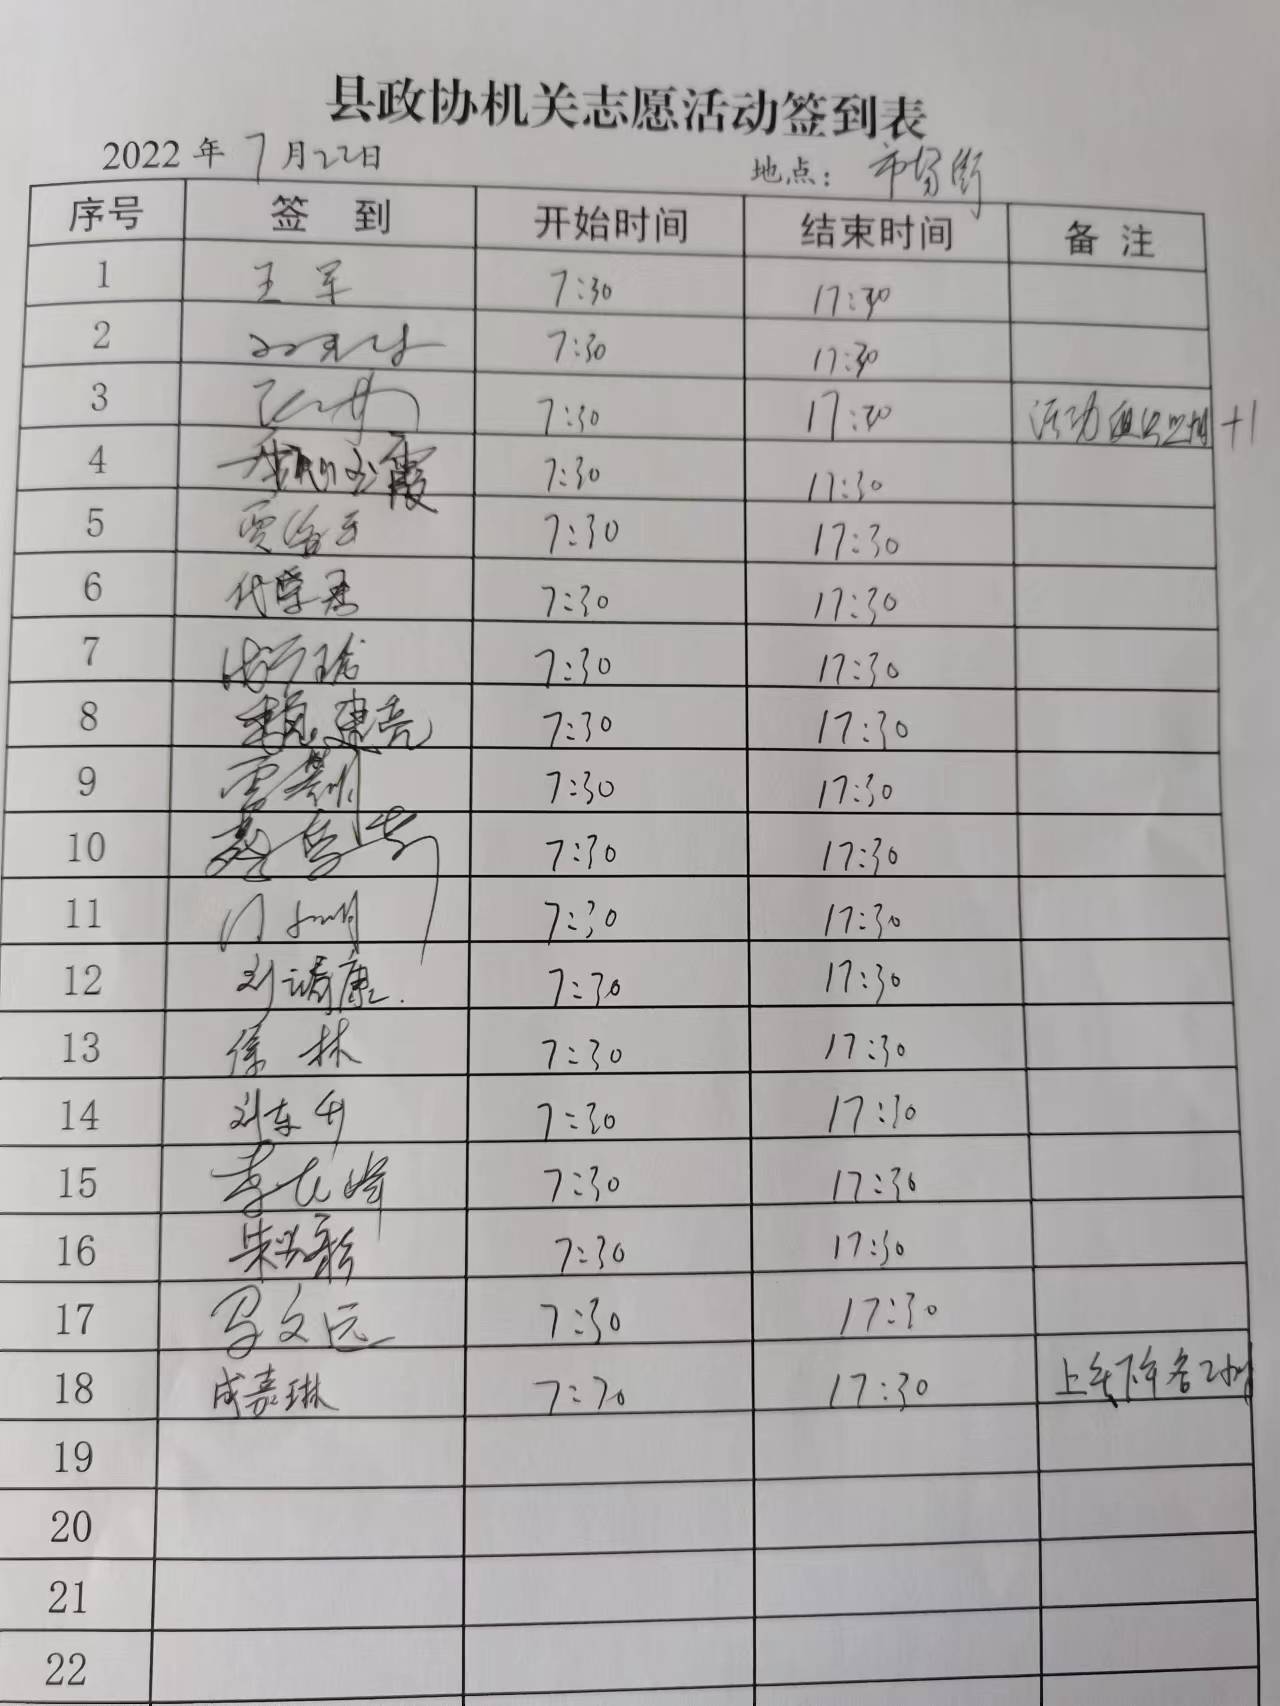 县政协机关志愿活动签到表
2022年7月22日 地点：市场街
序号 签 到 开始时间 结束时间 备 注
1 王军 7:30 17:30
2 7:30 17:30
3 7:30 17:30 活动组织 +1
4 霞 7:30 17:30
5 贾 7:30 17:30
6 代学君 7:30 17:30
7 7:30 17:30
8 魏建亮 7:30 17:30
9 7:30 17:30
10 7:30 17:30
11 7:30 17:30
12 刘靖康 7:30 17:30
13 徐林 7:30 17:30
14 刘东升 7:30 17:30
15 李长峰 7:30 17:30
16 朱 7:30 17:30
17 马文远 7:30 17:30
18 成嘉琳 7:30 17:30 上午下午各2小时
19
20
21
22